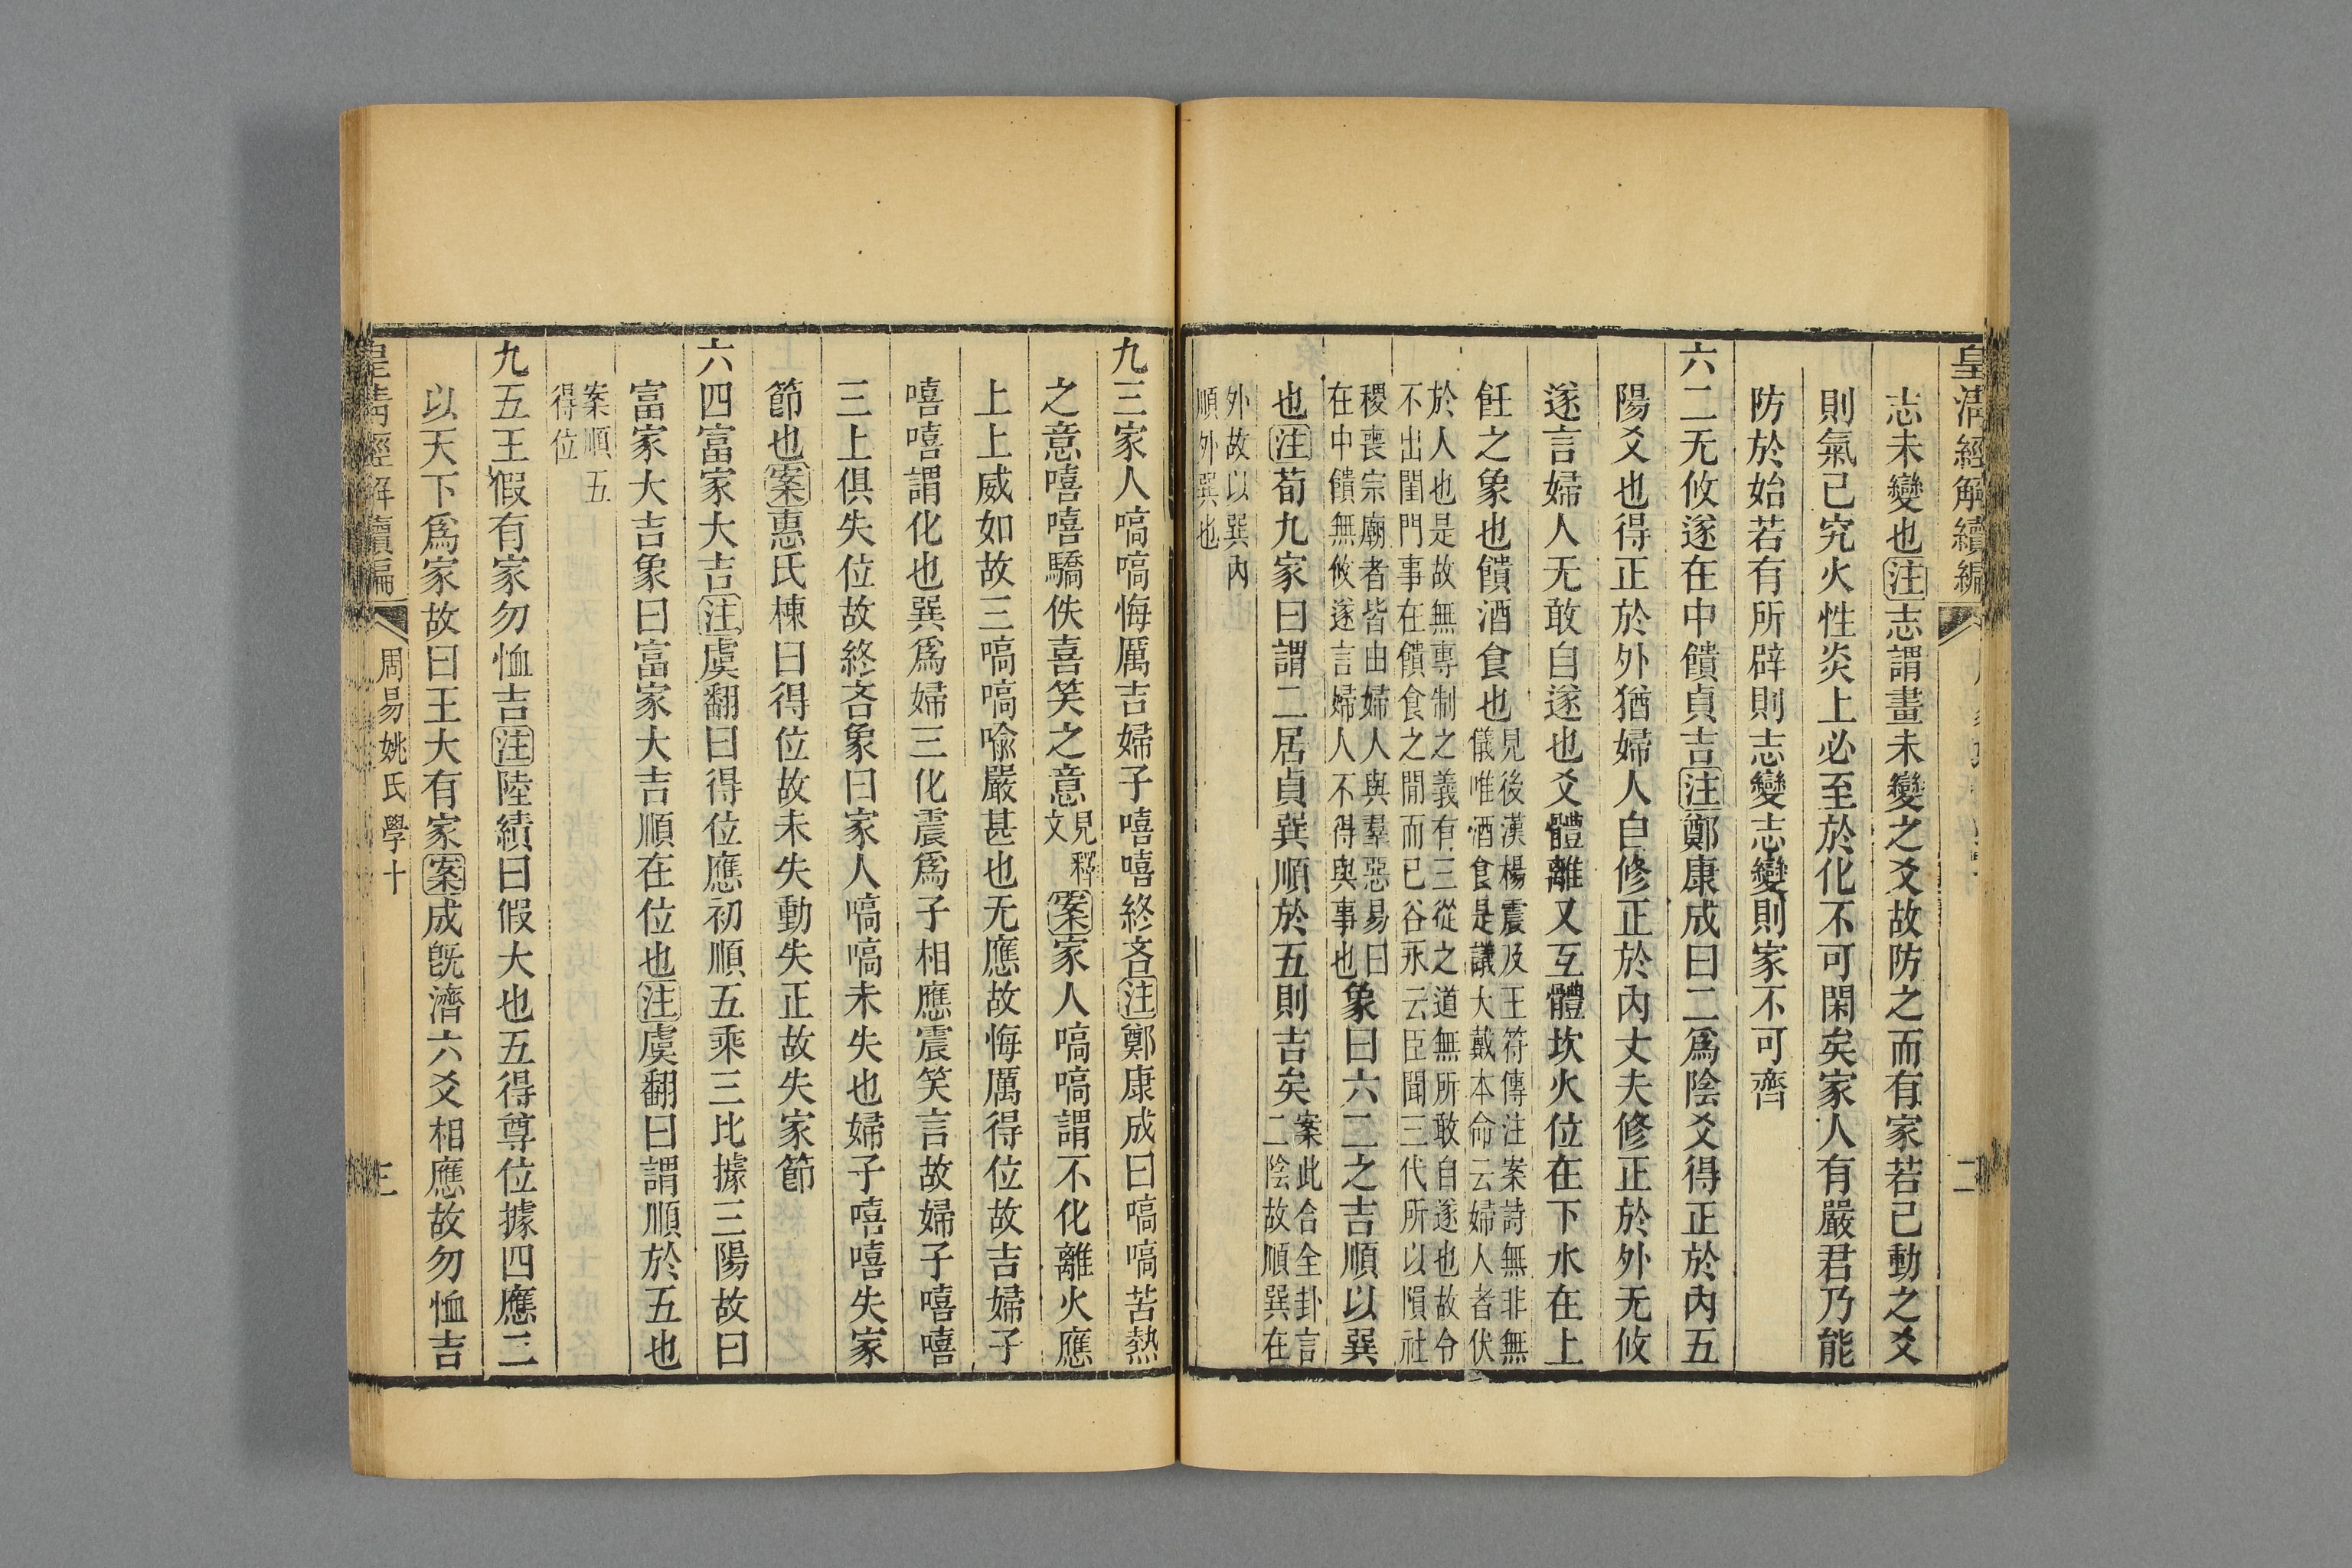 皇清經解續編
二
志未變也注志謂畫未變之爻故防之而有家若已動之爻
則氣已究火性炎上必至於化不可閑矣家人有嚴君乃能
防於始若有所辟則志變志變則家不可齊
六二无攸遂在中饋貞吉注鄭康成曰二爲陰爻得正於內五
陽爻也得正於外猶婦人自修正於內丈夫修正於外无攸
遂言婦人无敢自遂也爻體離又互體坎火位在下水在上
飪之象也饋酒食也見後漢楊震及王符傳注案詩無非無
儀唯酒食是議大戴本命云婦人者伏
於人也是故無專制之義有三從之道無所敢自遂也故令
不出閨門事在饋食之閒而已谷永云臣聞三代所以隕社
稷喪宗廟者皆由婦人與羣惡易曰
在中饋無攸遂言婦人不得與事也象曰六二之吉順以巽
也注荀九家曰謂二居貞巽順於五則吉矣案此合全卦言
二陰故順巽在
外故以巽內
順外巽也
九三家人嗃嗃悔厲吉婦子嘻嘻終吝注鄭康成曰嗃嗃苦熱
之意嘻嘻驕佚喜笑之意見釋
文案家人嗃嗃謂不化離火應
上上威如故三嗃嗃喩嚴甚也无應故悔厲得位故吉婦子
嘻嘻謂化也巽爲婦三化震爲子相應震笑言故婦子嘻嘻
三上俱失位故終吝象曰家人嗃嗃未失也婦子嘻嘻失家
節也案惠氏棟曰得位故未失動失正故失家節
六四富家大吉注虞翻曰得位應初順五乘三比據三陽故曰
富家大吉象曰富家大吉順在位也注虞翻曰謂順於五也
案順五
得位
九五王假有家勿恤吉注陸績曰假大也五得尊位據四應二
以天下爲家故曰王大有家案成旣濟六爻相應故勿恤吉
皇清經解續編
周易姚氏學十
三